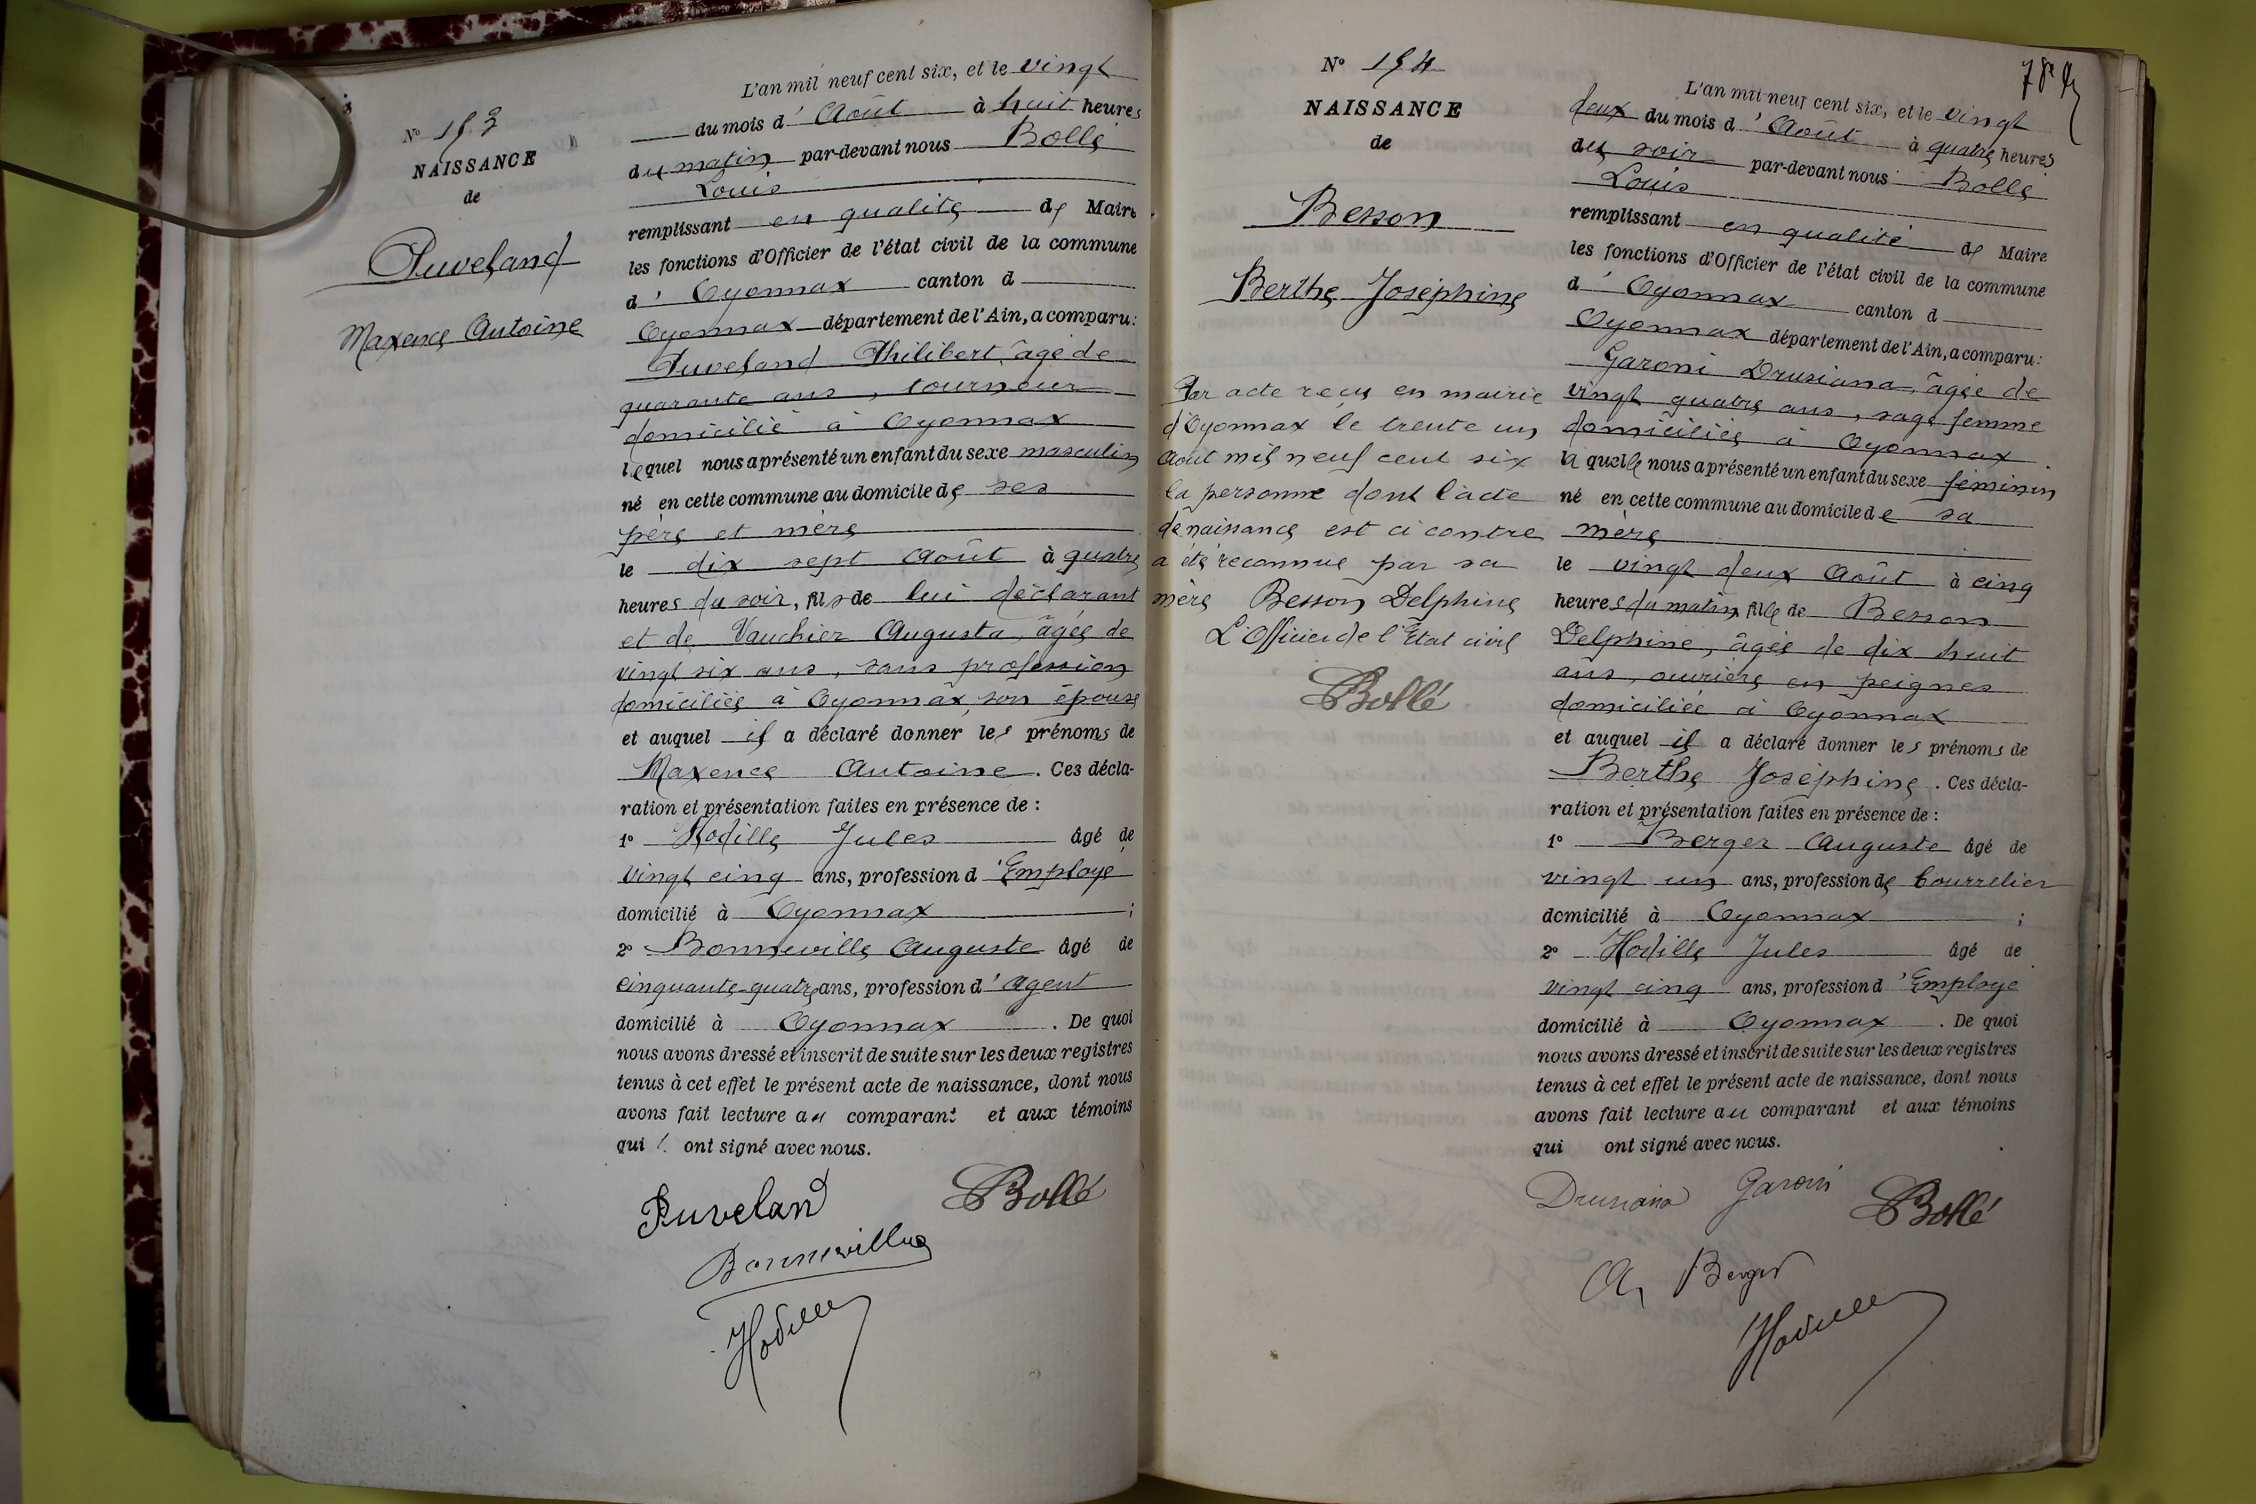 N° 153
NAISSANCE
de
Puveland
Maxence Antoine
L'an mil neuf cent six, et le vingt
du mois d'Août à huit heures
du matin par-devant nous Bollé
Louis
remplissant en qualité de Maire
les fonctions d'Officier de l'état civil de la commune
d'Oyonnax canton d
Oyonnax département de l'Ain, a comparu:
Puveland Philibert, âgé de
quarante ans, tourneur
domicilié à Oyonnax
lequel nous a présenté un enfant du sexe masculin
né en cette commune au domicile de ses
père et mère
le dix sept Août à quatre
heures du soir, fils de lui déclarant
et de Vauchier Augusta, âgée de
vingt six ans, sans profession
domiciliée à Oyonnax, son épouse
et auquel il a déclaré donner les prénoms de
Maxence Antoine. Ces décla-
ration et présentation faites en présence de :
1° Hodille Jules âgé de
vingt cinq ans, profession d'Employé
domicilié à Oyonnax ;
2° Bonneville Auguste âgé de
cinquante-quatre ans, profession d'agent
domicilié à Oyonnax. De quoi
nous avons dressé et inscrit de suite sur les deux registres
tenus à cet effet le présent acte de naissance, dont nous
avons fait lecture au comparant et aux témoins
qui ont signé avec nous.
Puveland Bollé
Bonneville
Hodille
78e
N° 154
NAISSANCE
de
Besson
Berthe Joséphine
Par acte reçu en mairie
d'Oyonnax le trente un
Août mil neuf cent six
la personne dont l'acte
de naissance est ci contre
a été reconnue par sa
mère Besson Delphine
L'Officier de l'Etat civil
Bollé
L'an mil neuf cent six, et le vingt
deux du mois d'Août à quatre heures
du soir par-devant nous Bollé
Louis
remplissant en qualité de Maire
les fonctions d'Officier de l'état civil de la commune
d'Oyonnax canton d
Oyonnax département de l'Ain, a comparu:
Garoni Drusiana, âgée de
vingt quatre ans, sage femme
domiciliée à Oyonnax.
laquelle nous a présenté un enfant du sexe féminin
né en cette commune au domicile de sa
mère
le vingt deux Août à cinq
heures du matin, fille de Besson
Delphine, âgée de dix huit
ans, ouvrière en peignes
domiciliée à Oyonnax
et auquel il a déclaré donner les prénoms de
Berthe Joséphine. Ces décla-
ration et présentation faites en présence de :
1° Berger Auguste âgé de
vingt un ans, profession de bourrelier
domicilié à Oyonnax ;
2° Hodille Jules âgé de
vingt cinq ans, profession d'Employé
domicilié à Oyonnax. De quoi
nous avons dressé et inscrit de suite sur les deux registres
tenus à cet effet le présent acte de naissance, dont nous
avons fait lecture au comparant et aux témoins
qui ont signé avec nous.
Drusiana Garoni Bollé
A. Berger
Hodille